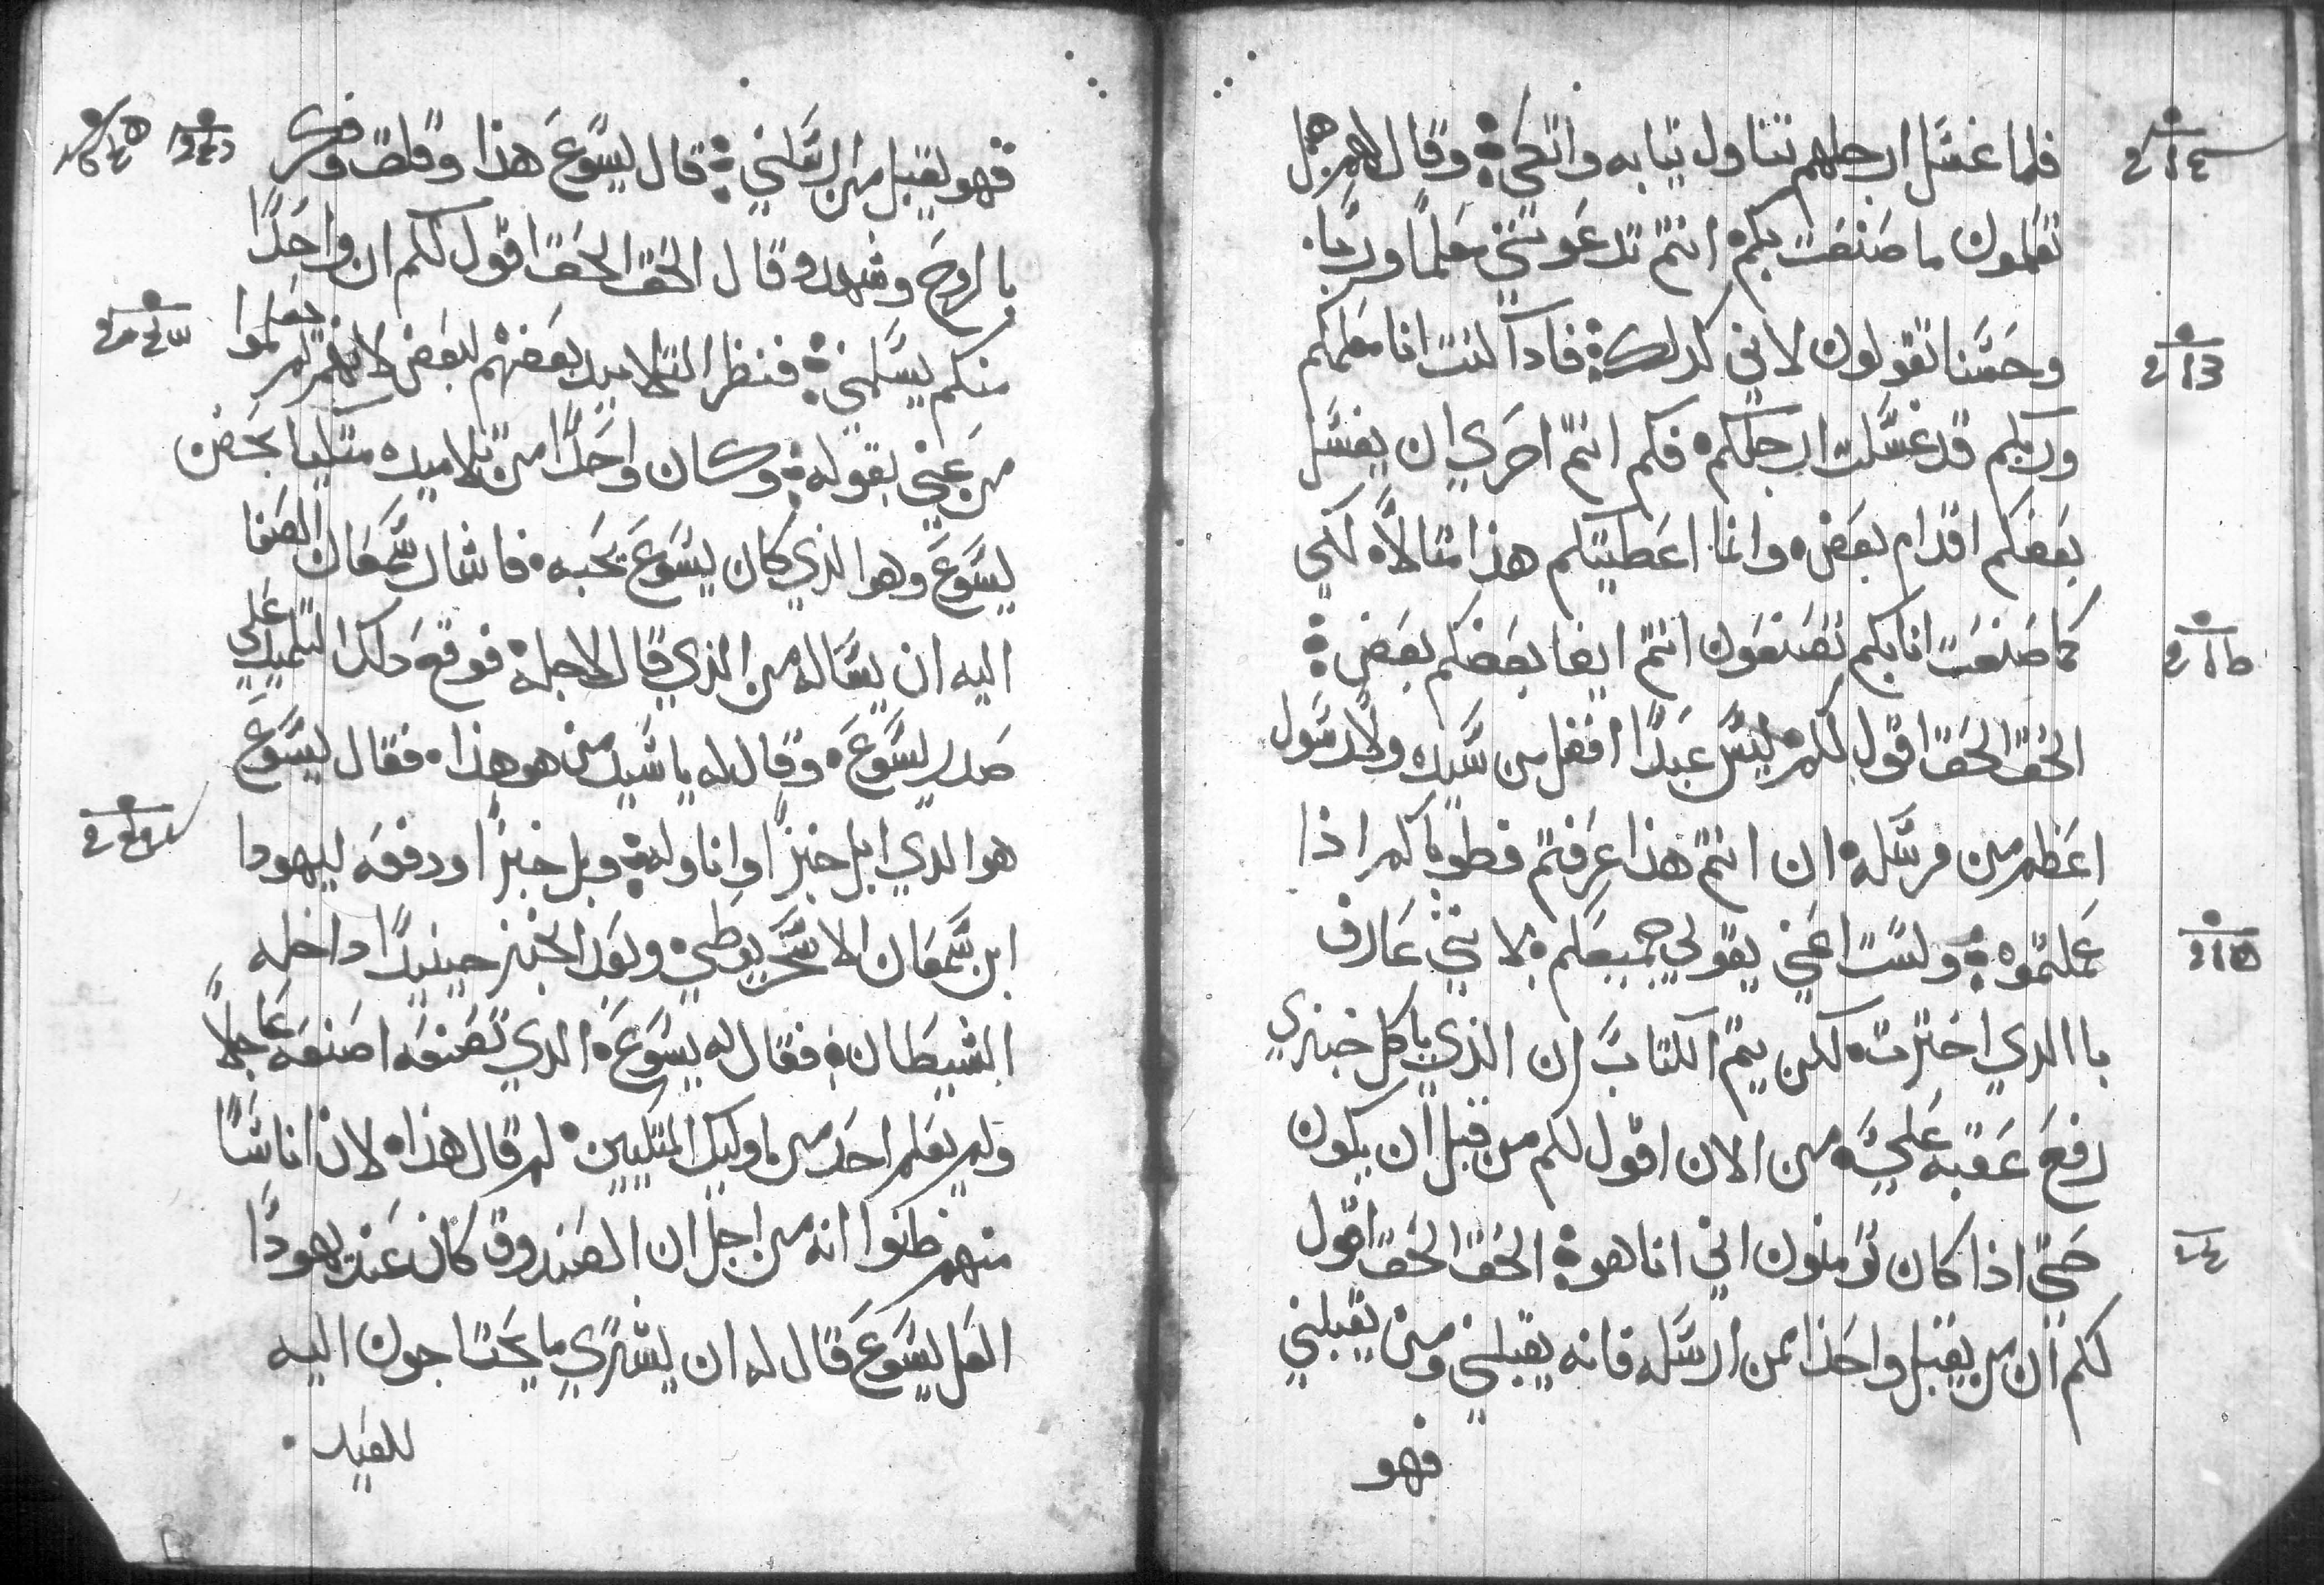 فلما غسل ارجلهم تناول تيابه واتكي وقال لهم هل
تعلمون ما صنعت بكم انتم تدعونني معلما وربا
وحسنا تقولون لاني كدلك فادا كنت انا معلمكم
وربكم قد غسلت ارجلكم فكم انتم احري ان يغسل
بعضكم اقدام بعض وانما اعطيتكم هذا متالا لكي
كما صنعت انا بكم تصنعون انتم ايضا بعضكم بعض
الحق الحق اقول لكم ليس عبدا افضل من سيده ولا رسول
اعظم من مرسله ان انتم هذا عرفتم فطوباكم اذا
عملتموه ولست اعني بقولي جميعكم لانني عارف
با الدي اخترت لكن يتم الكتاب ان الذي ياكل خبزي
رفع عقبه علي من الان اقول لكم من قبل ان يكون
حتي اذا كان تومنون اني انا هو الحق الحق اقول
لكم ان من يقبل واحدا ممن ارسله فانه يقبلني ومن يقبلني
فهو
فهو يقبل من ارسلني قال يسوع هذا وقلق وفكر
با الروح وشهد وقال الحق الحق اقول لكم ان واحدا
منكم يسلمني فنظر التلاميد بعضهم لبعض لانهم لم يعلموا
من عني بقوله وكان واحدا من تلاميده متكيا بحضن
يسوع وهوا الذي كان يسوع يحبه فاشار سمعان الصفا
اليه ان يساله من الذي قال لاجله فوقع دلك التلميد علي
صدر يسوع وقال له يا سيد من هو هذا فقال يسوع
هوا الدي ابل خبزا واناوله وبل خبزا ودفعه ليهودا
ابن سمعان الاسخريوطي وبعد الخبز حينيدا داخله
الشيطان فقال له يسوع الدي تصنعه اصنعه عاجلا
ولم يعلم احد من اوليك المتكيين لم قال هذا لان اناسا
منهم ظنوا انه من اجل ان الصندوق كان عند يهودا
العل يسوع قال له ان يشتري ما يحتاجون اليه
للعيد